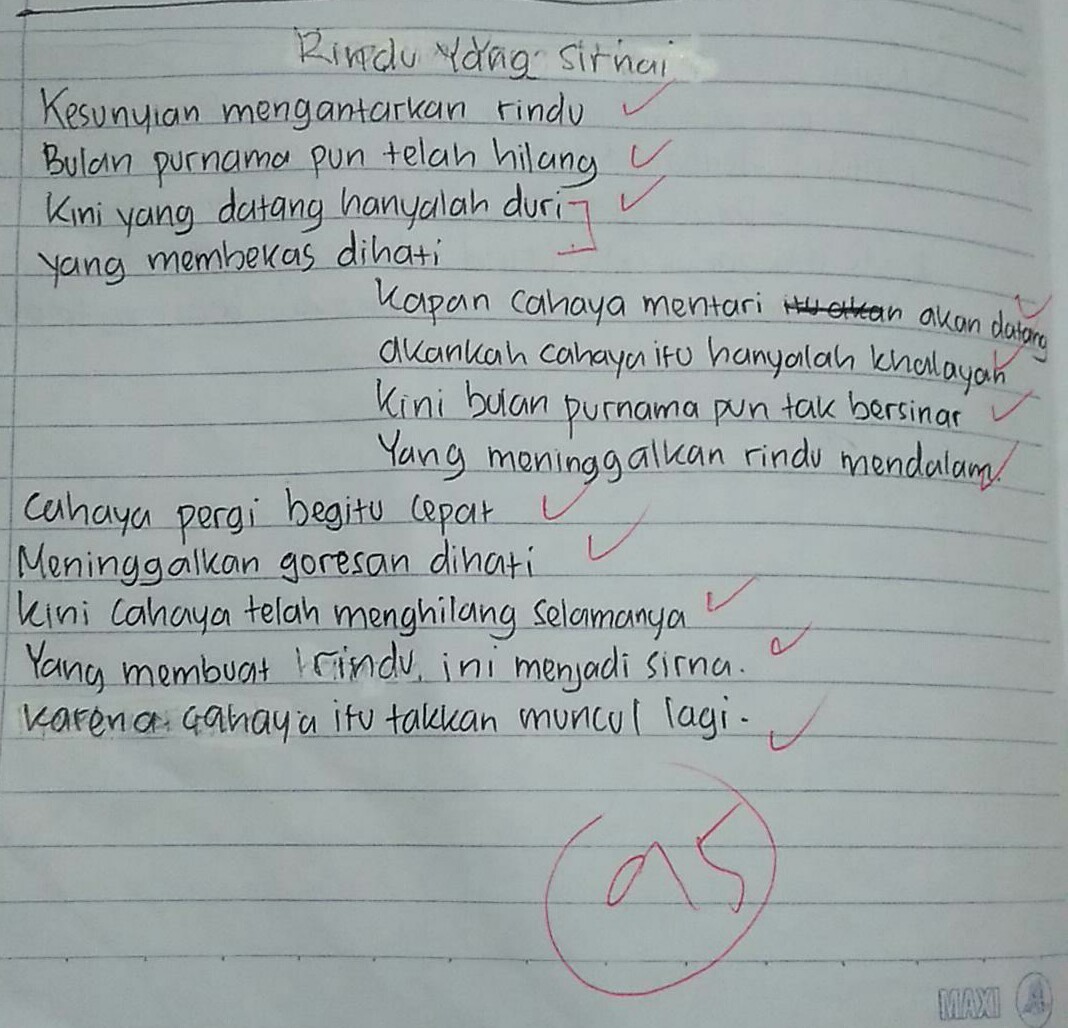 Rindu yang sirnai
Kesunyian mengantarkan rindu
Bulan purnama pun telah hilang
Kini yang datang hanyalah duri
yang membekas dihati
Kapan cahaya mentari itu akan akan datang
akankah cahaya itu hanyalah khalayah
Kini bulan purnama pun tak bersinar
Yang meninggalkan rindu mendalam.
Cahaya pergi begitu cepat
Meninggalkan goresan dihati
kini cahaya telah menghilang selamanya
Yang membuat rindu ini menjadi sirna.
karena cahaya itu takkan muncul lagi.
95
MAXI